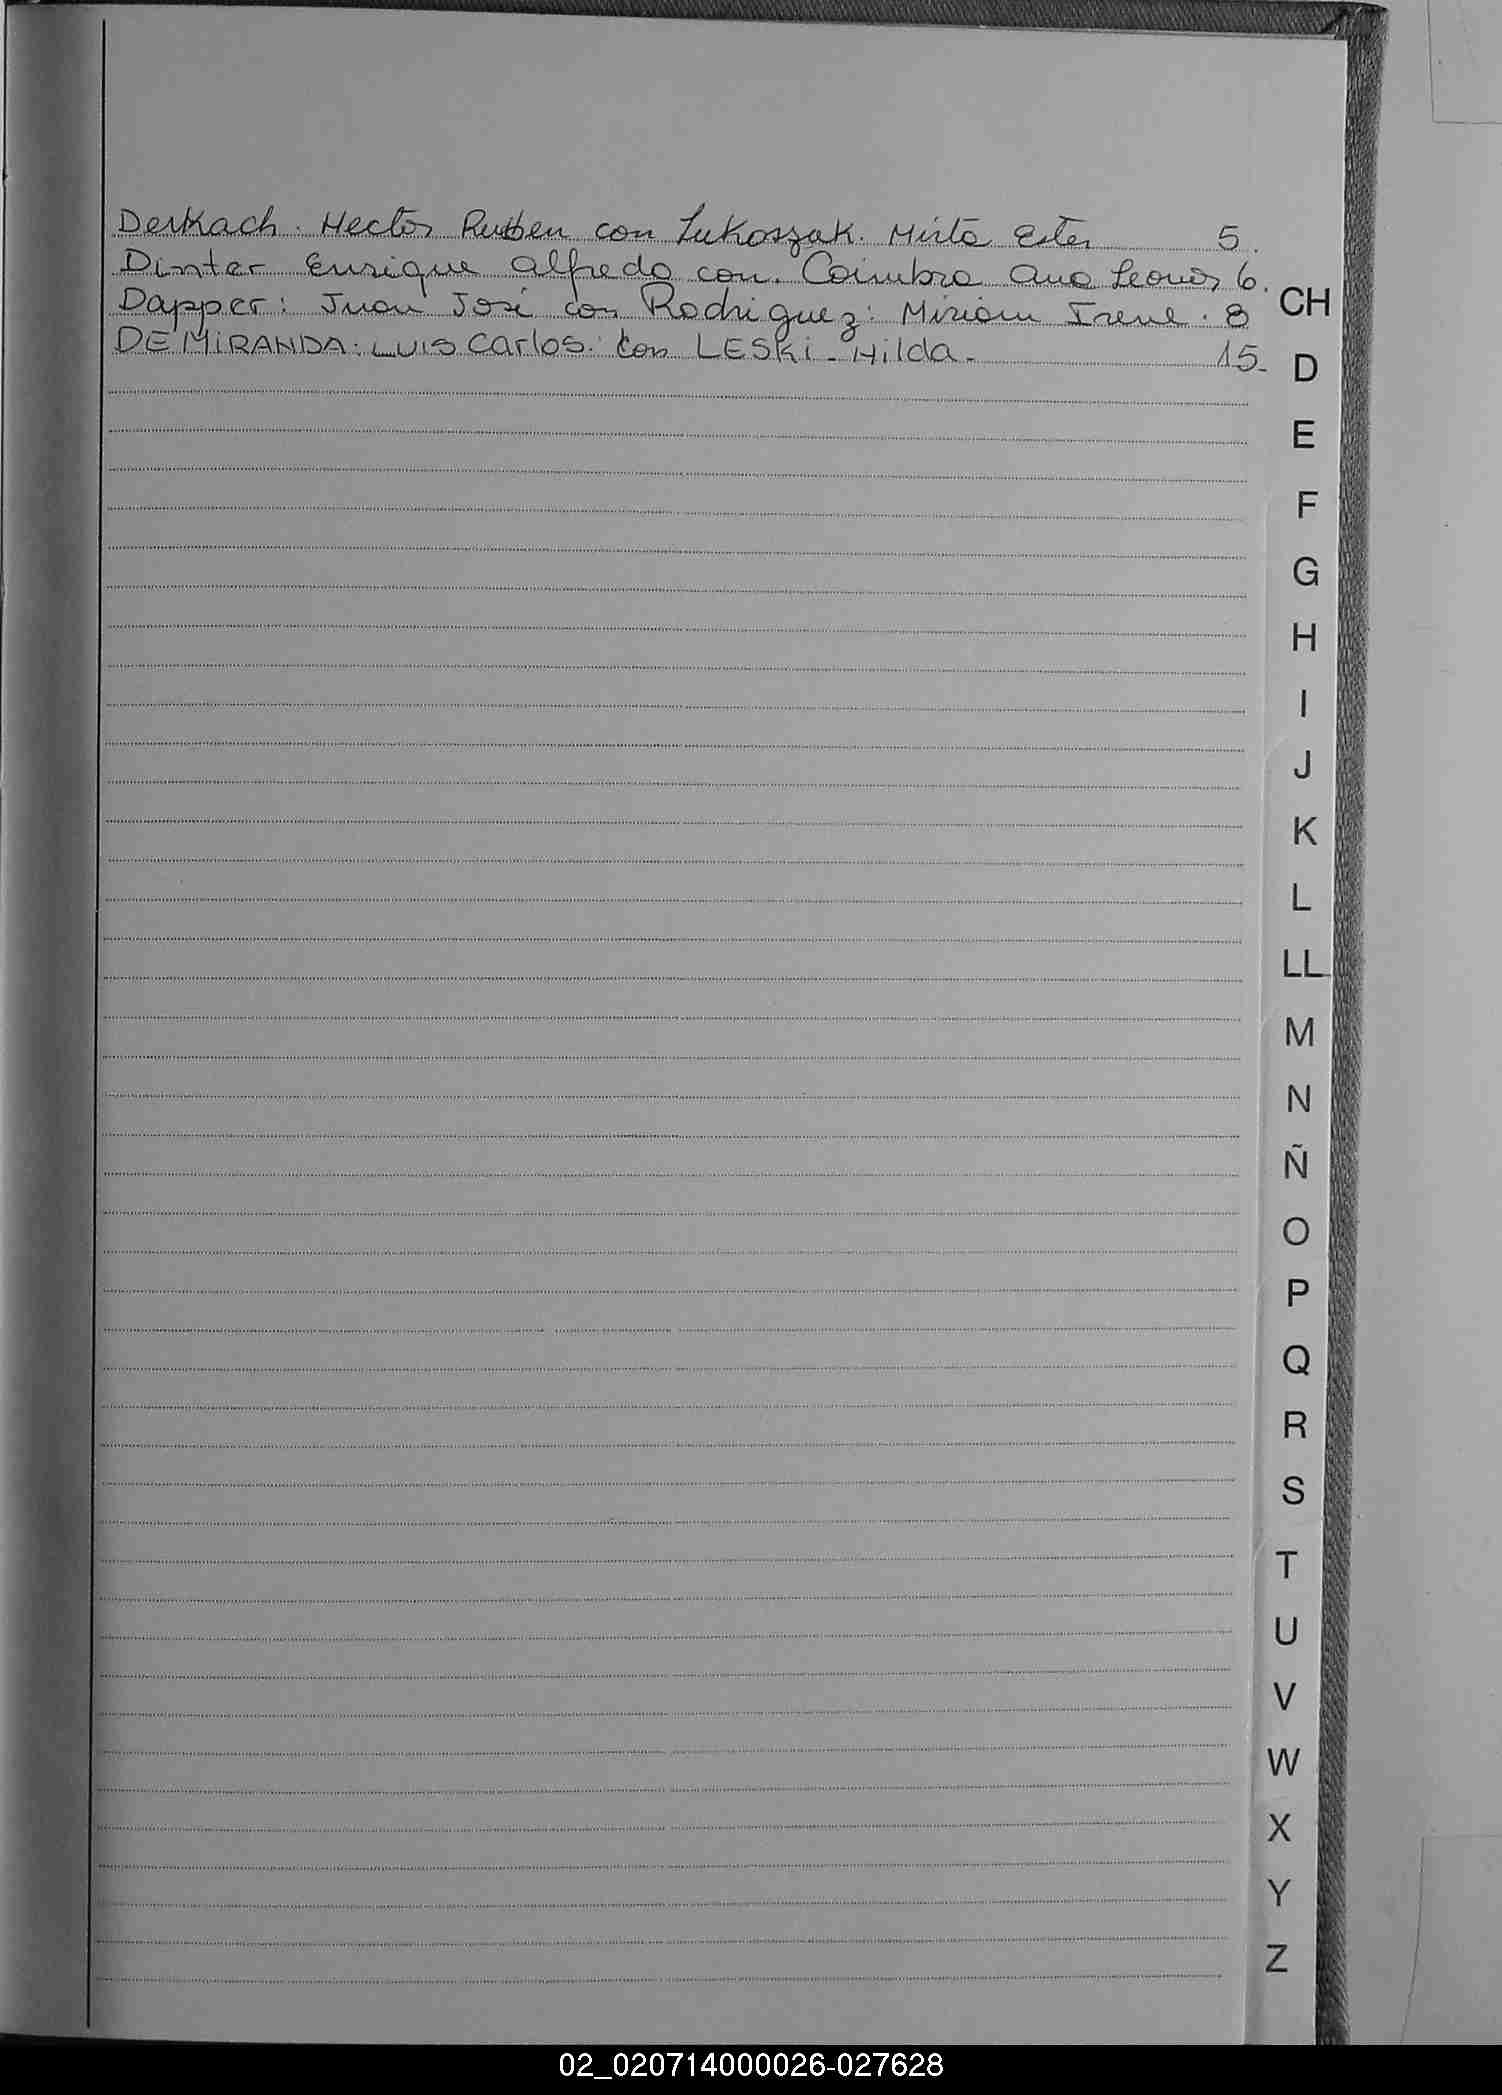 Derkach. Hector Ruben con Lukoszak. Mirta Ester 5.
Dinter Enrique Alfredo con. Coimbra Ana Leonor 6.
Dapper: Juan José con Rodriguez: Miriam Irene. 8
DE MIRANDA: LUIS Carlos. con LESKi - Hilda. 15-
CH
D
E
F
G
H
I
J
K
L
LL
M
N
Ñ
O
P
Q
R
S
T
U
V
W
X
Y
Z
02_020714000026-027628